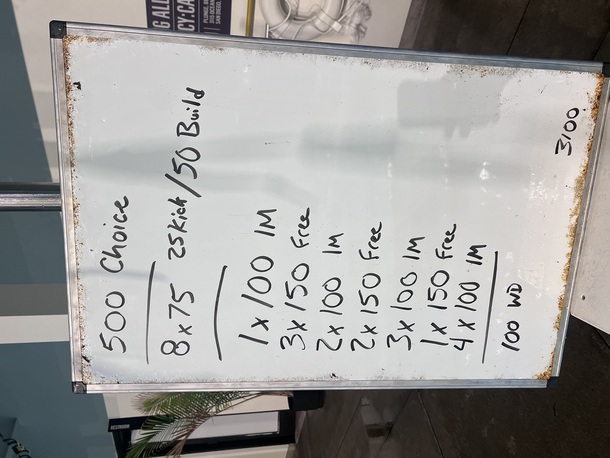 500 Choice
8 x 75 25 Kick/50 Build
1 x 100 IM
3 x 150 Free
2 x 100 IM
2 x 150 Free
3 x 100 IM
1 x 150 Free
4 x 100 IM
100 WD
3100